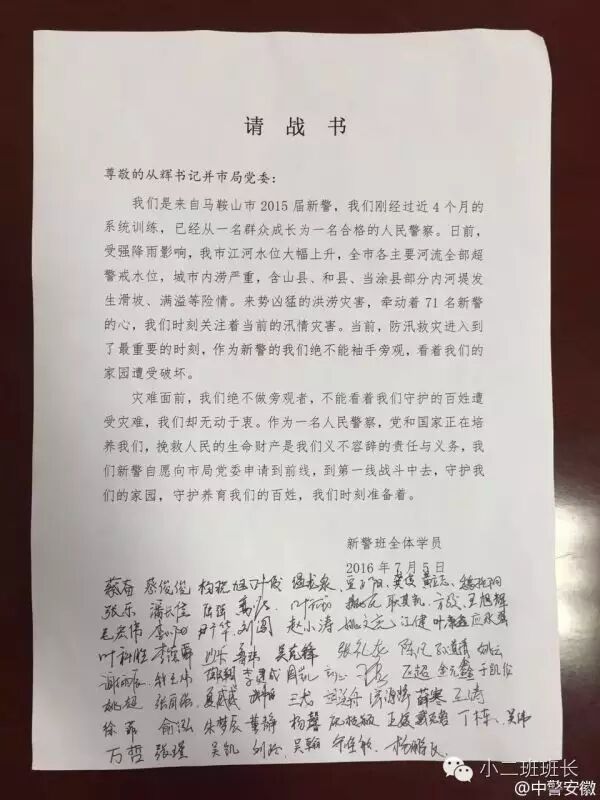 请战书
尊敬的从辉书记并市局党委：
我们是来自马鞍山市2015届新警，我们刚经过近4个月的
系统训练，已经从一名群众成长为一名合格的人民警察。日前，
受强降雨影响，我市江河水位大幅上升，全市各主要河流全部超
警戒水位，城市内涝严重，含山县、和县、当涂县部分内河堤发
生滑坡、满溢等险情。来势凶猛的洪涝灾害，牵动着71名新警
的心，我们时刻关注着当前的汛情灾害。当前，防汛救灾进入到
了最重要的时刻，作为新警的我们绝不能袖手旁观，看着我们的
家园遭受破坏。
灾难面前，我们绝不做旁观者，不能看着我们守护的百姓遭
受灾难，我们却无动于衷。作为一名人民警察，党和国家正在培
养我们，挽救人民的生命财产是我们义不容辞的责任与义务，我
们新警自愿向市局党委申请到前线，到第一线战斗中去，守护我
们的家园，守护养育我们的百姓，我们时刻准备着。
新警班全体学员
2016年7月5日
蔡奋 蔡俊俊
张东 潘长信 赵小涛 江健
毛宏伟 刘闯
叶科胜 张礼龙
姚超 李建成 周凯 于凯
徐菲 俞泓 朱梦辰 董静 杨馨 丁栋 吴伟
万哲 张瑾 吴凯 刘玲 吴翰 杨鹏飞
小二班班长
@中警安徽